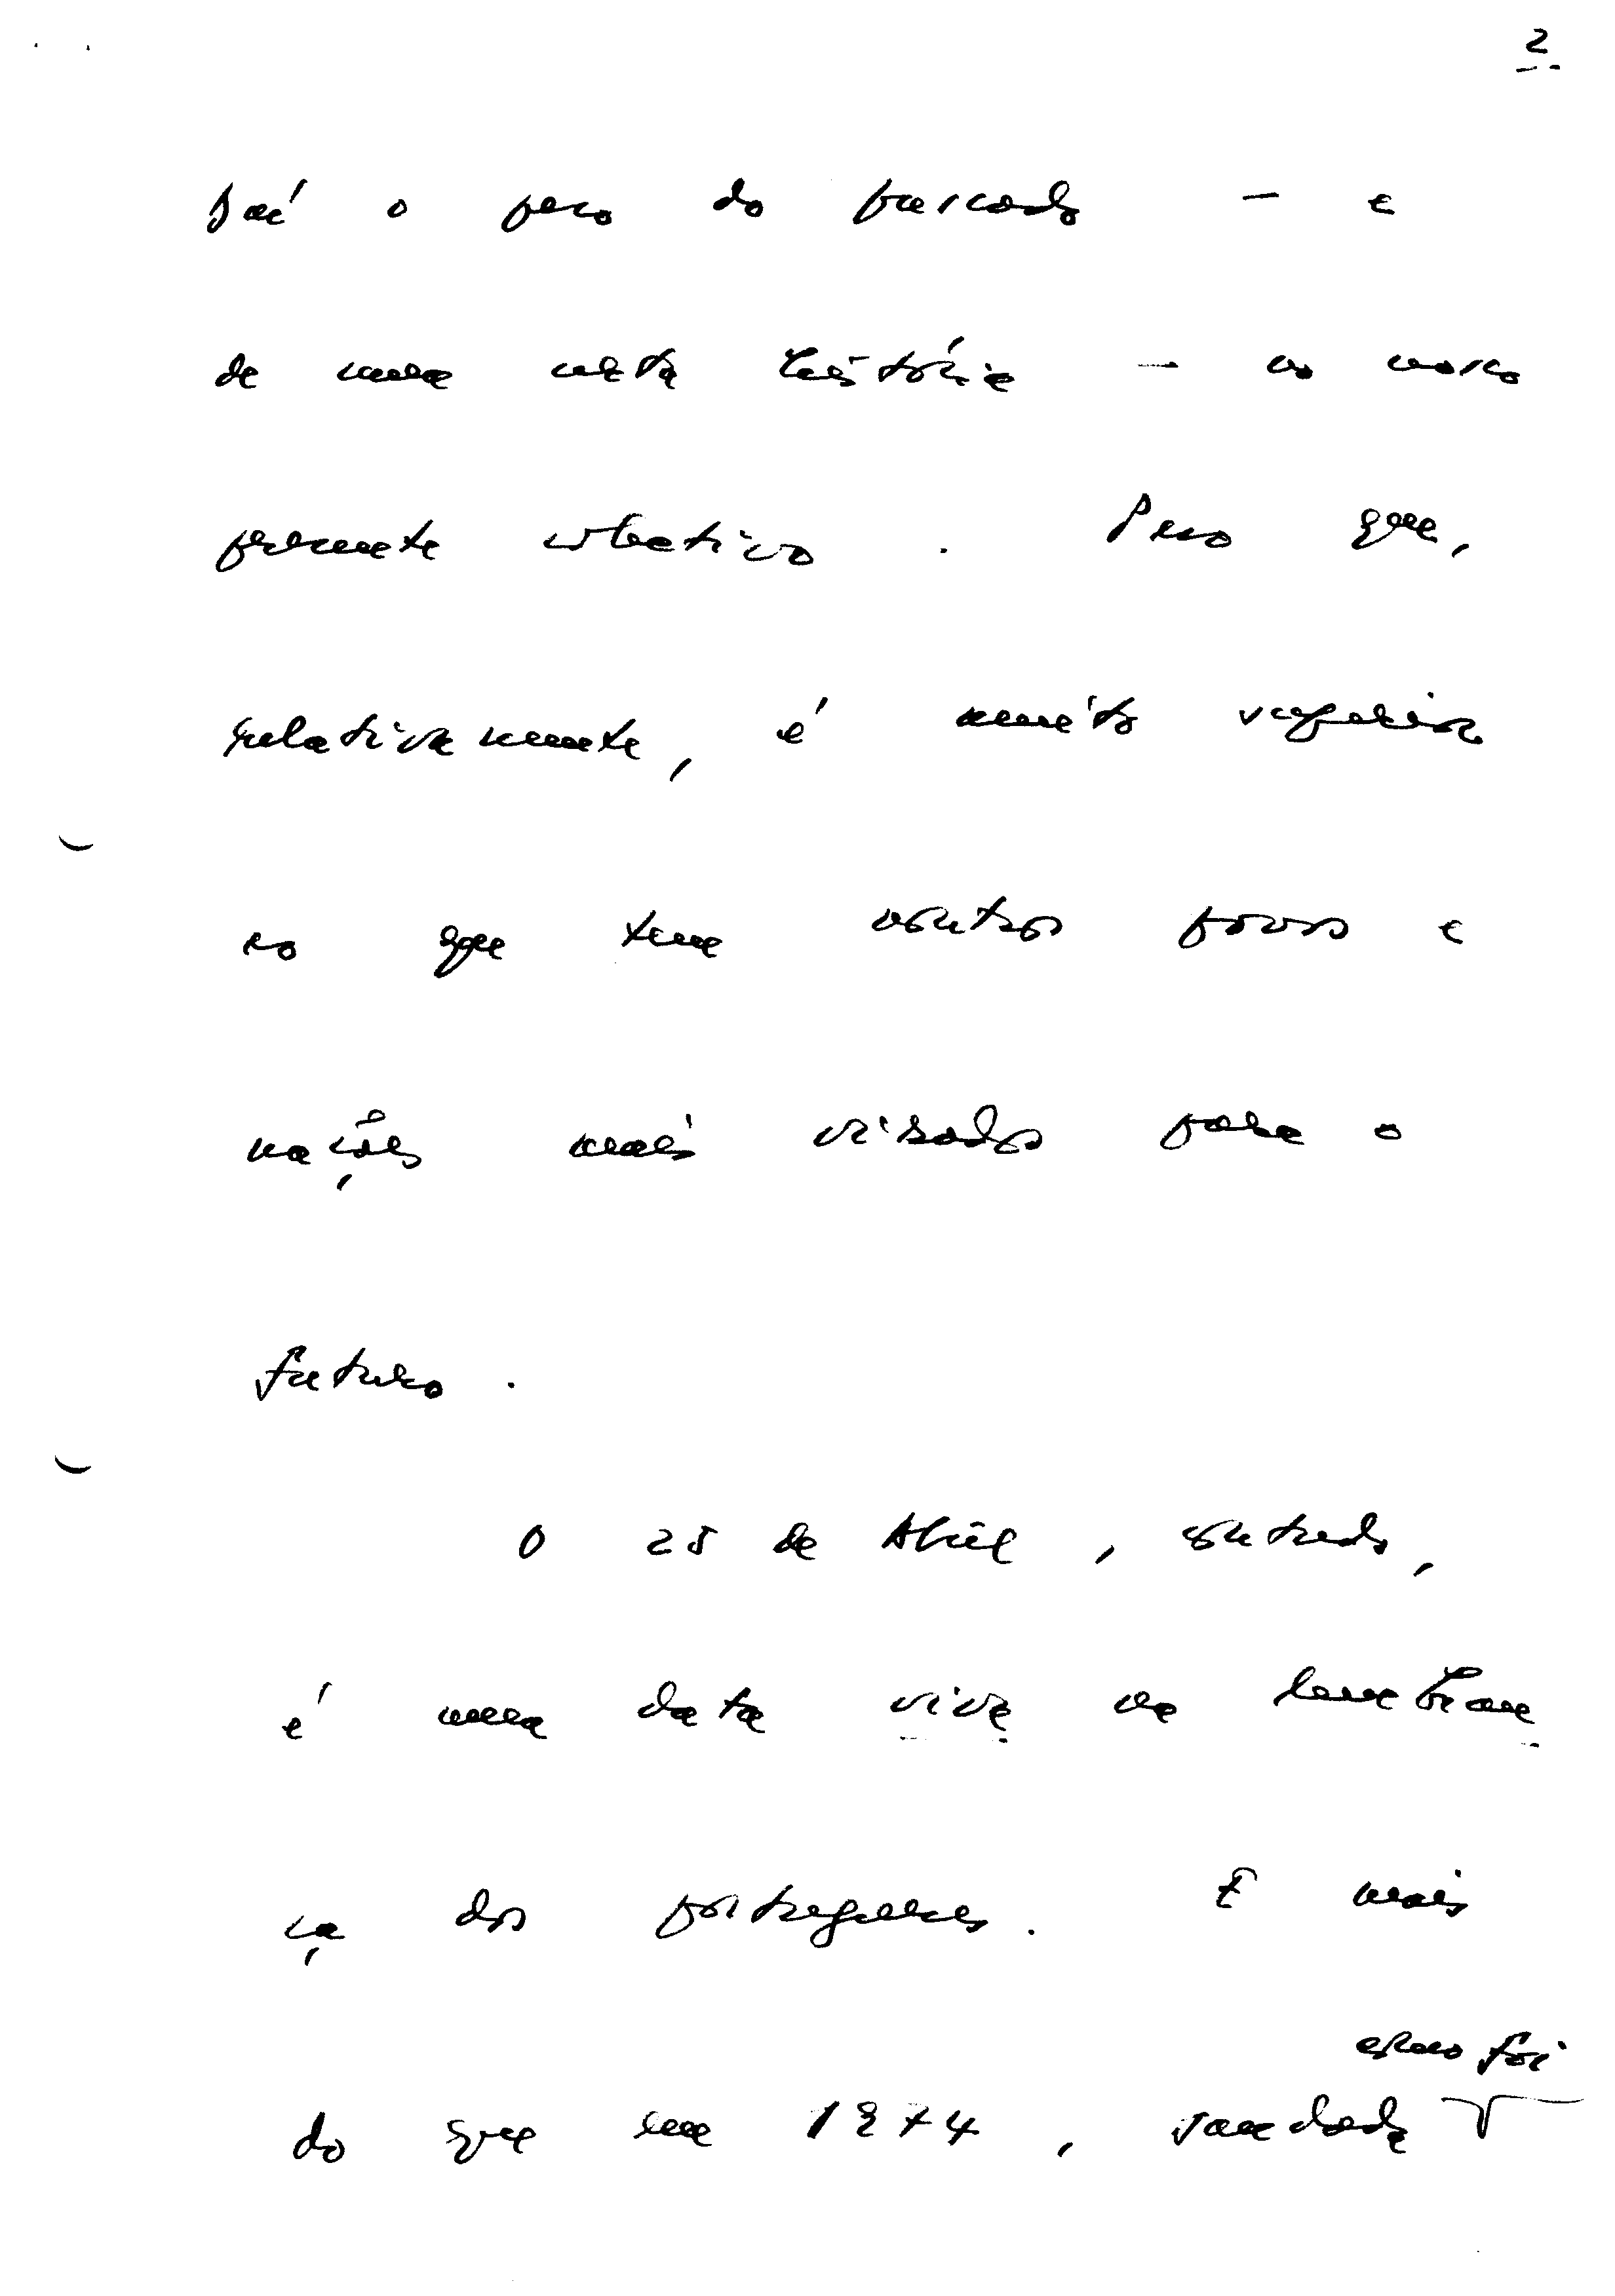 2
Daí o peso do passado — e
de uma certa história — no nosso
presente colectivo. Peso que,
relativamente, é muito superior
ao que tem outros povos e
nações mais virados para o
futuro.
O 25 de Abril, contudo,
é uma data viva na lembran
ça dos portugueses. E mais
como foi
do que em 1974, saudada